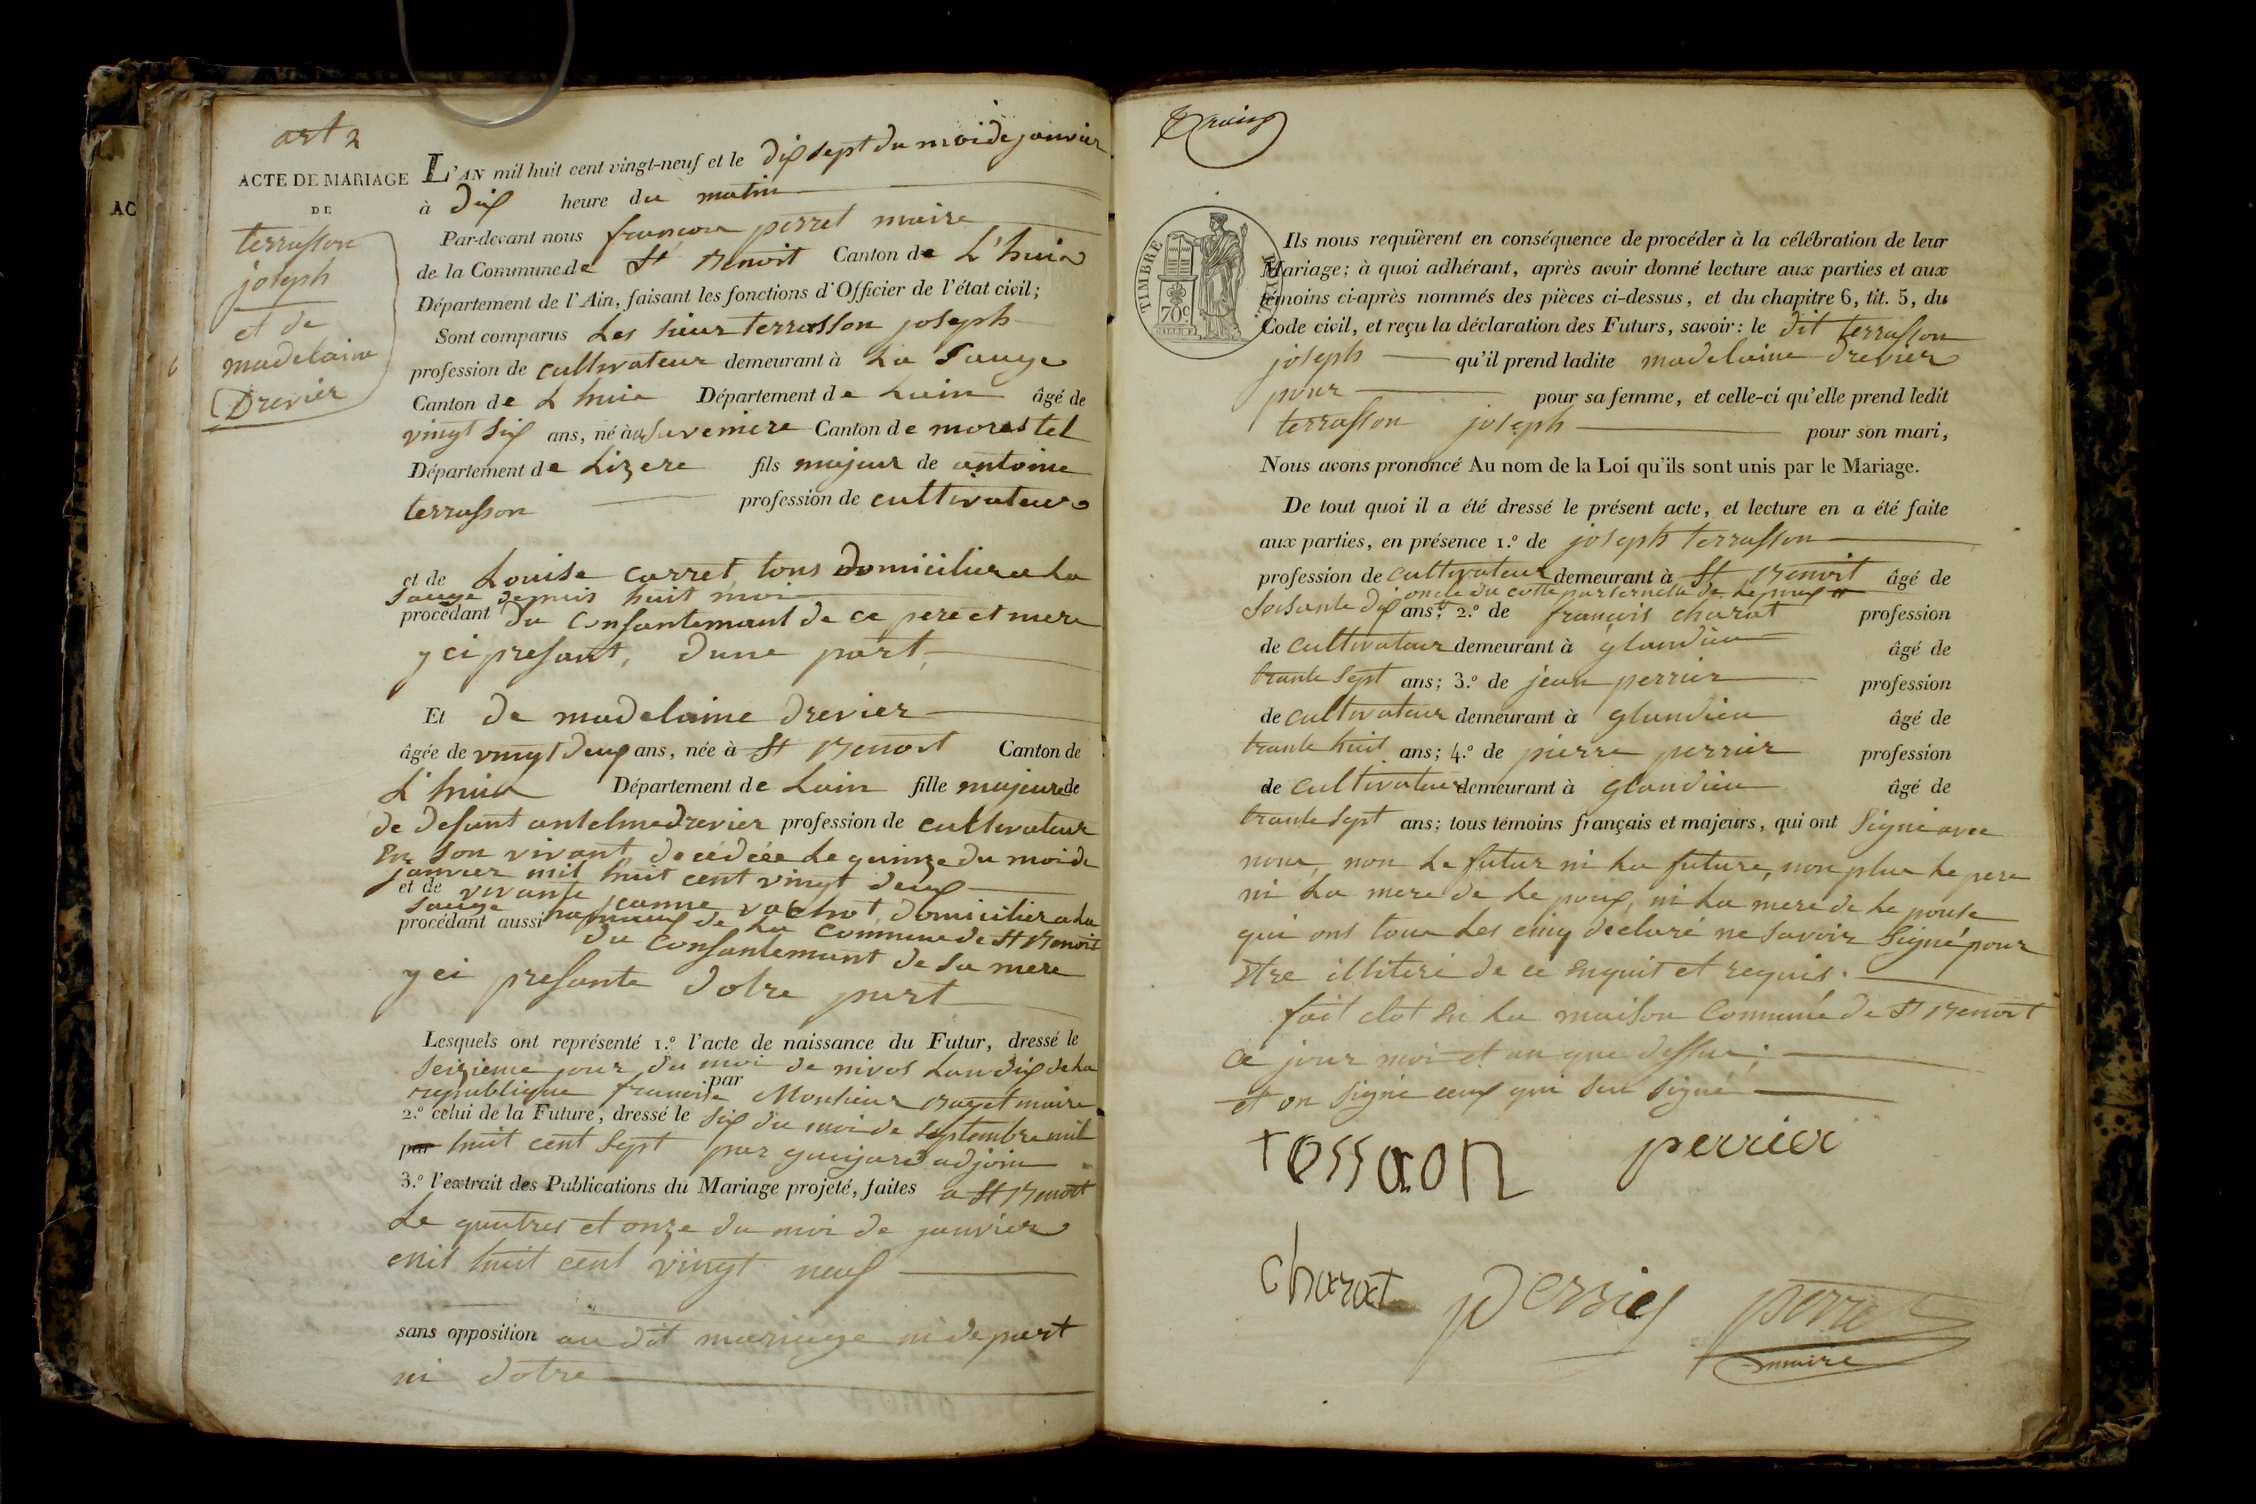 art 2
ACTE DE MARIAGE
DE
terrasson
joseph
et de
madelaine
Drevier
AC
L'AN mil huit cent vingt-neuf et le dix sept du moi de janvier
à dix heure du matin
Par-devant nous françou perret maire
de la Commune de St Benoit Canton de L'huia
Département de l'Ain, faisant les fonctions d'Officier de l'état civil;
Sont comparus Les sieur terrasson joseph
profession de cultivateur demeurant à La Sauge
Canton de L huia Département de Lain âgé de
vingt six ans, né à Canton de morestel
Département de Lizere fils majeur de antoine
terrasson profession de cultivateur
et de Louise carret, tous Domicilier a La
Sauge depuis huit moi
procédant du Consantemant de ce pere et mere
y ci presant, dune part,
Et de madelaine drevier
âgée de vingt deux ans, née à St Benoit Canton de
L'huia Département de Lain fille majeure de
de defunt antelme drevier profession de cultivateur
en son vivant, decédée Le quinze du moi de
janvier mil huit cent vingt deux
et de vivante jeanne vachot, domicilier a La
Sauge hameux de La Commune de St Benoit
procédant aussi du Consantemant de sa mere
y ci presante dotre part
Lesquels ont représenté 1.º l'acte de naissance du Futur, dressé le
seizieme jour du moi de nivos Lan dix de La
republique francoise par Monsieur maire
2.º celui de la Future, dressé le six du moi de septembre mil
par huit cent sept par guigard adjoin
3.º l'extrait des Publications du Mariage projeté, faites a St Benoit
Le quatres et onze du moi de janvier
mil huit cent vingt neuf
sans opposition au dit mariage ni de part
ni dotre
TIMBRE ROYAL
70c
Ils nous requièrent en conséquence de procéder à la célébration de leur
Mariage; à quoi adhérant, après avoir donné lecture aux parties et aux
témoins ci-après nommés des pièces ci-dessus, et du chapitre 6, tit. 5, du
Code civil, et reçu la déclaration des Futurs, savoir: le dit terrasson
joseph qu'il prend ladite madelaine drevier
pour pour sa femme, et celle-ci qu'elle prend ledit
terrasson joseph pour son mari,
Nous avons prononcé Au nom de la Loi qu'ils sont unis par le Mariage.
De tout quoi il a été dressé le présent acte, et lecture en a été faite
aux parties, en présence 1.º de joseph terrasson
profession de cultivateur demeurant à St Benoit âgé de
oncle du cotté parternelle de Lepoux
soisante dix ans; 2.º de francois charat profession
de cultivateur demeurant à glandieu âgé de
trante sept ans; 3.º de jean perrier profession
de cultivateur demeurant à glandieu âgé de
trante huit ans; 4.º de pierre perrier profession
de cultivateur demeurant à glandieu âgé de
trante sept ans; tous témoins français et majeurs, qui ont signé avec
nous, non Le futur ni La future, non plus Le pere
ni La mere de Le poux, ni La mere de Le pouse
qui ont tous Les cinq declaré ne savoir signé pour
etre illiteré de ce enquit et requis.
fait clot en La maison Commune de St Benoit
ce jour moi et an que dessus;
et on signé ceux qui su signé
tessaon
perrier
charat
perrier
perret
maire